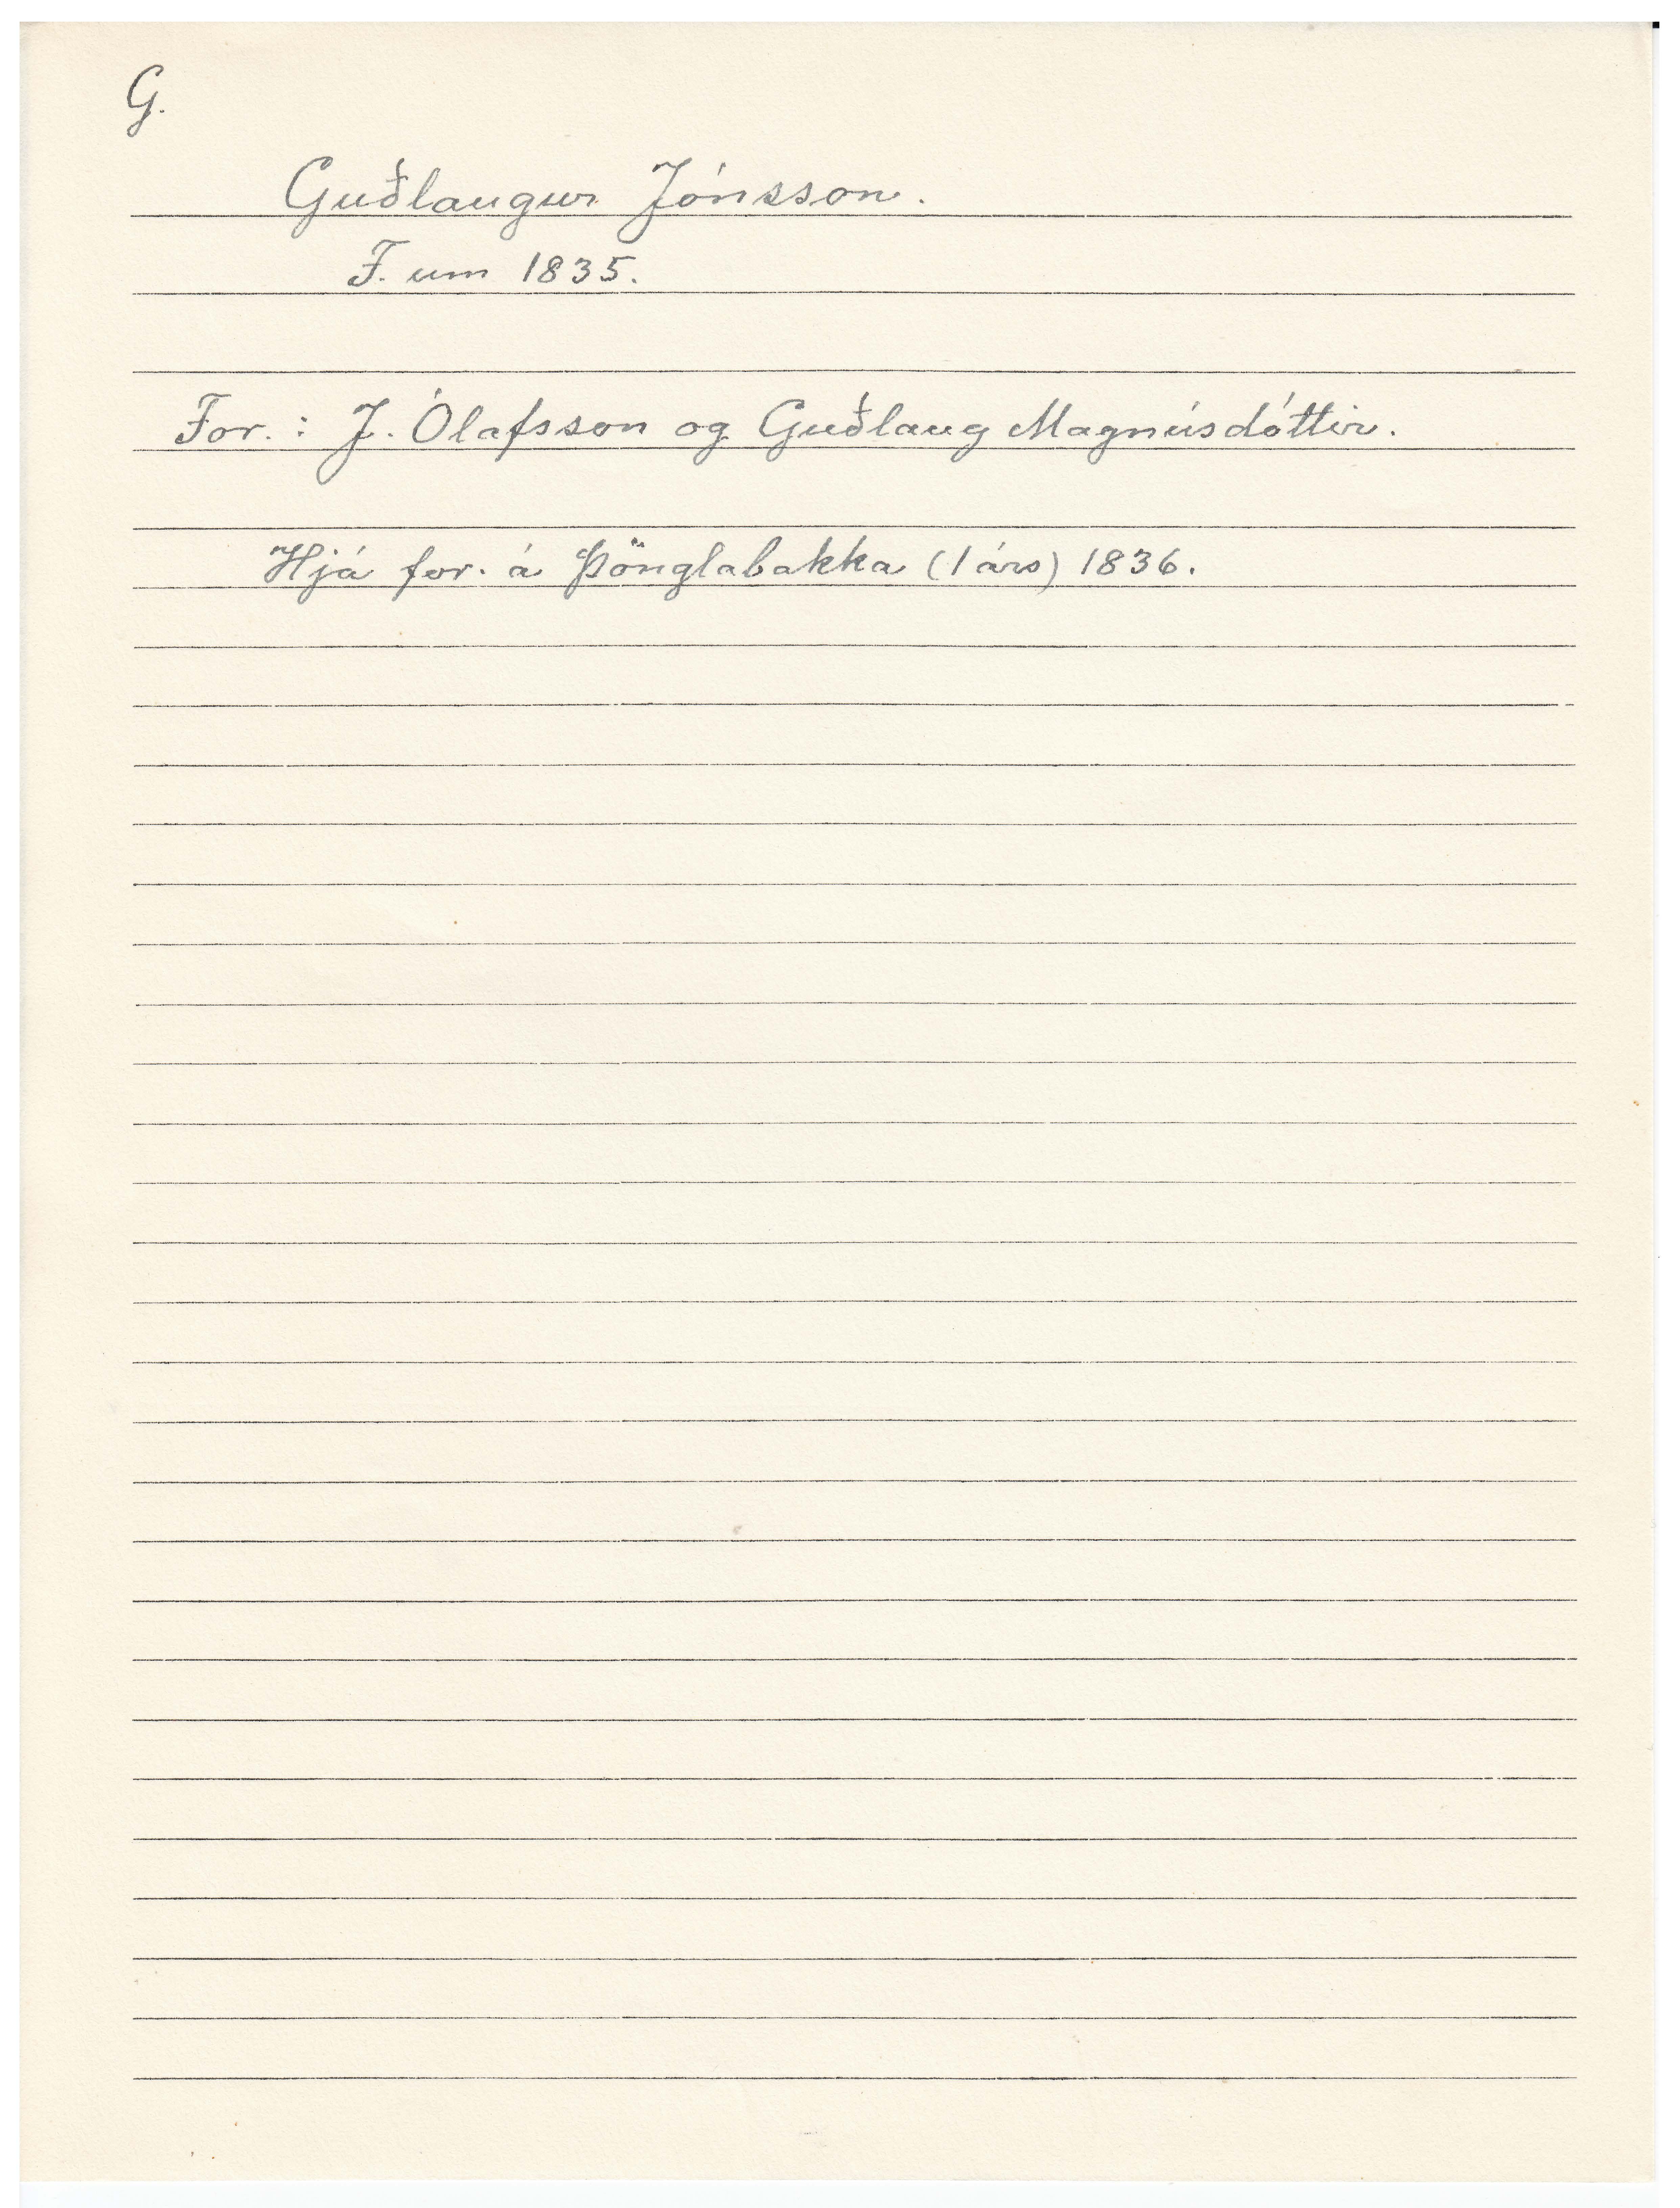 G.
Guðlaugur Jónsson.
F. um 1835.
For.: J. Ólafsson og Guðlaug Magnúsdóttir.
Hjá for. á Þönglabakka (1 árs) 1836.